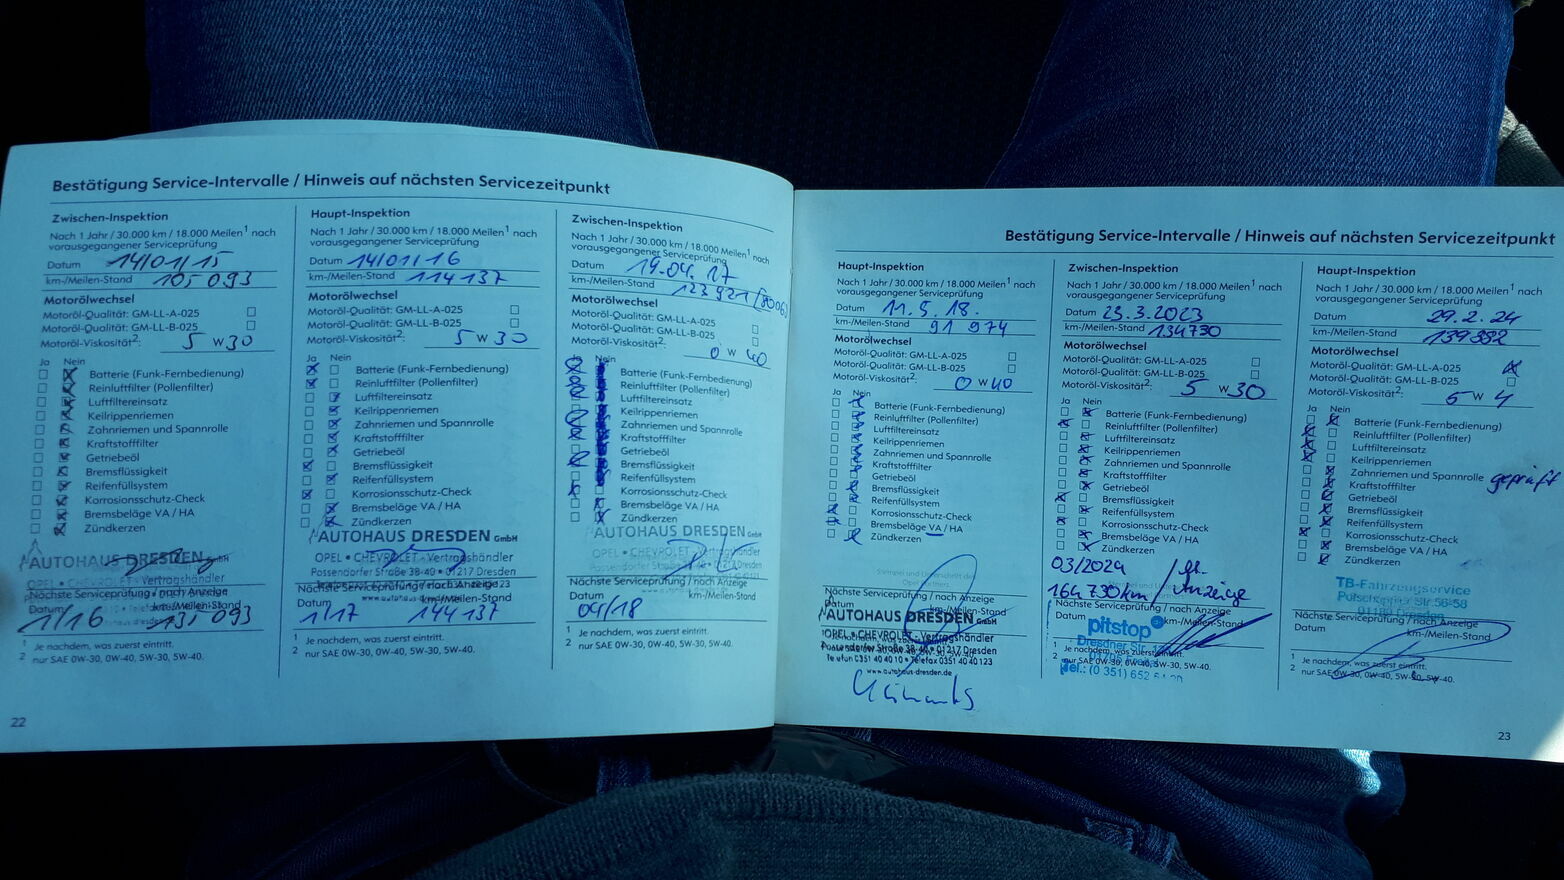 Bestätigung Service-Intervalle / Hinweis auf nächsten Servicezeitpunkt
Zwischen-Inspektion
Nach 1 Jahr / 30.000 km / 18.000 Meilen¹ nach
vorausgegangener Serviceprüfung
Datum 14/01/15
km-/Meilen-Stand 105 093
Motorölwechsel
Motoröl-Qualität: GM-LL-A-025
Motoröl-Qualität: GM-LL-B-025
Motoröl-Viskosität²: 5 W 30
Ja Nein
Batterie (Funk-Fernbedienung)
Reinluftfilter (Pollenfilter)
Luftfiltereinsatz
Keilrippenriemen
Zahnriemen und Spannrolle
Kraftstofffilter
Getriebeöl
Bremsflüssigkeit
Reifenfüllsystem
Korrosionsschutz-Check
Bremsbeläge VA / HA
Zündkerzen
AUTOHAUS DRESDEN GmbH
OPEL • CHEVROLET - Vertragshändler
Nächste Serviceprüfung / nach Anzeige
Datum km-/Meilen-Stand
1/16 135 093
1 Je nachdem, was zuerst eintritt.
2 nur SAE 0W-30, 0W-40, 5W-30, 5W-40.
22
Haupt-Inspektion
Nach 1 Jahr / 30.000 km / 18.000 Meilen¹ nach
vorausgegangener Serviceprüfung
Datum 14/01/16
km-/Meilen-Stand 114 137
Motorölwechsel
Motoröl-Qualität: GM-LL-A-025
Motoröl-Qualität: GM-LL-B-025
Motoröl-Viskosität²: 5 W 30
Ja Nein
Batterie (Funk-Fernbedienung)
Reinluftfilter (Pollenfilter)
Luftfiltereinsatz
Keilrippenriemen
Zahnriemen und Spannrolle
Kraftstofffilter
Getriebeöl
Bremsflüssigkeit
Reifenfüllsystem
Korrosionsschutz-Check
Bremsbeläge VA / HA
Zündkerzen
AUTOHAUS DRESDEN GmbH
OPEL • CHEVROLET - Vertragshändler
Possendorfer Straße 38-40 • 01217 Dresden
Nächste Serviceprüfung / nach Anzeige
Datum km-/Meilen-Stand
1/17 144 137
1 Je nachdem, was zuerst eintritt.
2 nur SAE 0W-30, 0W-40, 5W-30, 5W-40.
Zwischen-Inspektion
Nach 1 Jahr / 30.000 km / 18.000 Meilen¹ nach
vorausgegangener Serviceprüfung
Datum 19.04.17
km-/Meilen-Stand 123 921
Motorölwechsel
Motoröl-Qualität: GM-LL-A-025
Motoröl-Qualität: GM-LL-B-025
Motoröl-Viskosität²: 0 W 40
Ja Nein
Batterie (Funk-Fernbedienung)
Reinluftfilter (Pollenfilter)
Luftfiltereinsatz
Keilrippenriemen
Zahnriemen und Spannrolle
Kraftstofffilter
Getriebeöl
Bremsflüssigkeit
Reifenfüllsystem
Korrosionsschutz-Check
Bremsbeläge VA / HA
Zündkerzen
AUTOHAUS DRESDEN GmbH
OPEL • CHEVROLET - Vertragshändler
Possendorfer Straße 38-40 • 01217 Dresden
Nächste Serviceprüfung / nach Anzeige
Datum km-/Meilen-Stand
04/18
1 Je nachdem, was zuerst eintritt.
2 nur SAE 0W-30, 0W-40, 5W-30, 5W-40.
Bestätigung Service-Intervalle / Hinweis auf nächsten Servicezeitpunkt
Haupt-Inspektion
Nach 1 Jahr / 30.000 km / 18.000 Meilen¹ nach
vorausgegangener Serviceprüfung
Datum 11.5.18.
km-/Meilen-Stand 91 974
Motorölwechsel
Motoröl-Qualität: GM-LL-A-025
Motoröl-Qualität: GM-LL-B-025
Motoröl-Viskosität²: 0 W 40
Ja Nein
Batterie (Funk-Fernbedienung)
Reinluftfilter (Pollenfilter)
Luftfiltereinsatz
Keilrippenriemen
Zahnriemen und Spannrolle
Kraftstofffilter
Getriebeöl
Bremsflüssigkeit
Reifenfüllsystem
Korrosionsschutz-Check
Bremsbeläge VA / HA
Zündkerzen
Nächste Serviceprüfung / nach Anzeige
Datum km-/Meilen-Stand
AUTOHAUS DRESDEN GmbH
OPEL • CHEVROLET - Vertragshändler
Possendorfer Straße 38-40 • 01217 Dresden
Telefon 0351 40 40 10 • Telefax 0351 40 40 123
www.autohaus-dresden.de
Zwischen-Inspektion
Nach 1 Jahr / 30.000 km / 18.000 Meilen¹ nach
vorausgegangener Serviceprüfung
Datum 23.3.2023
km-/Meilen-Stand 134730
Motorölwechsel
Motoröl-Qualität: GM-LL-A-025
Motoröl-Qualität: GM-LL-B-025
Motoröl-Viskosität²: 5 W 30
Ja Nein
Batterie (Funk-Fernbedienung)
Reinluftfilter (Pollenfilter)
Luftfiltereinsatz
Keilrippenriemen
Zahnriemen und Spannrolle
Kraftstofffilter
Getriebeöl
Bremsflüssigkeit
Reifenfüllsystem
Korrosionsschutz-Check
Bremsbeläge VA / HA
Zündkerzen
03/2024
164 730 km / Anzeige
Nächste Serviceprüfung / nach Anzeige
Datum km-/Meilen-Stand
pitstop
Dresdner Str.
1 Je nachdem, was zuerst eintritt.
2 nur SAE 0W-30, 0W-40, 5W-30, 5W-40.
Tel.: (0 351) 652
Haupt-Inspektion
Nach 1 Jahr / 30.000 km / 18.000 Meilen¹ nach
vorausgegangener Serviceprüfung
Datum 29.2.24
km-/Meilen-Stand 139 882
Motorölwechsel
Motoröl-Qualität: GM-LL-A-025
Motoröl-Qualität: GM-LL-B-025
Motoröl-Viskosität²: 5 W 4
Ja Nein
Batterie (Funk-Fernbedienung)
Reinluftfilter (Pollenfilter)
Luftfiltereinsatz
Keilrippenriemen
Zahnriemen und Spannrolle geprüft
Kraftstofffilter
Getriebeöl
Bremsflüssigkeit
Reifenfüllsystem
Korrosionsschutz-Check
Bremsbeläge VA / HA
Zündkerzen
TB-Fahrzeugservice
01189 Dresden
Nächste Serviceprüfung / nach Anzeige
Datum km-/Meilen-Stand
1 Je nachdem, was zuerst eintritt.
2 nur SAE 0W-30, 0W-40, 5W-30, 5W-40.
23